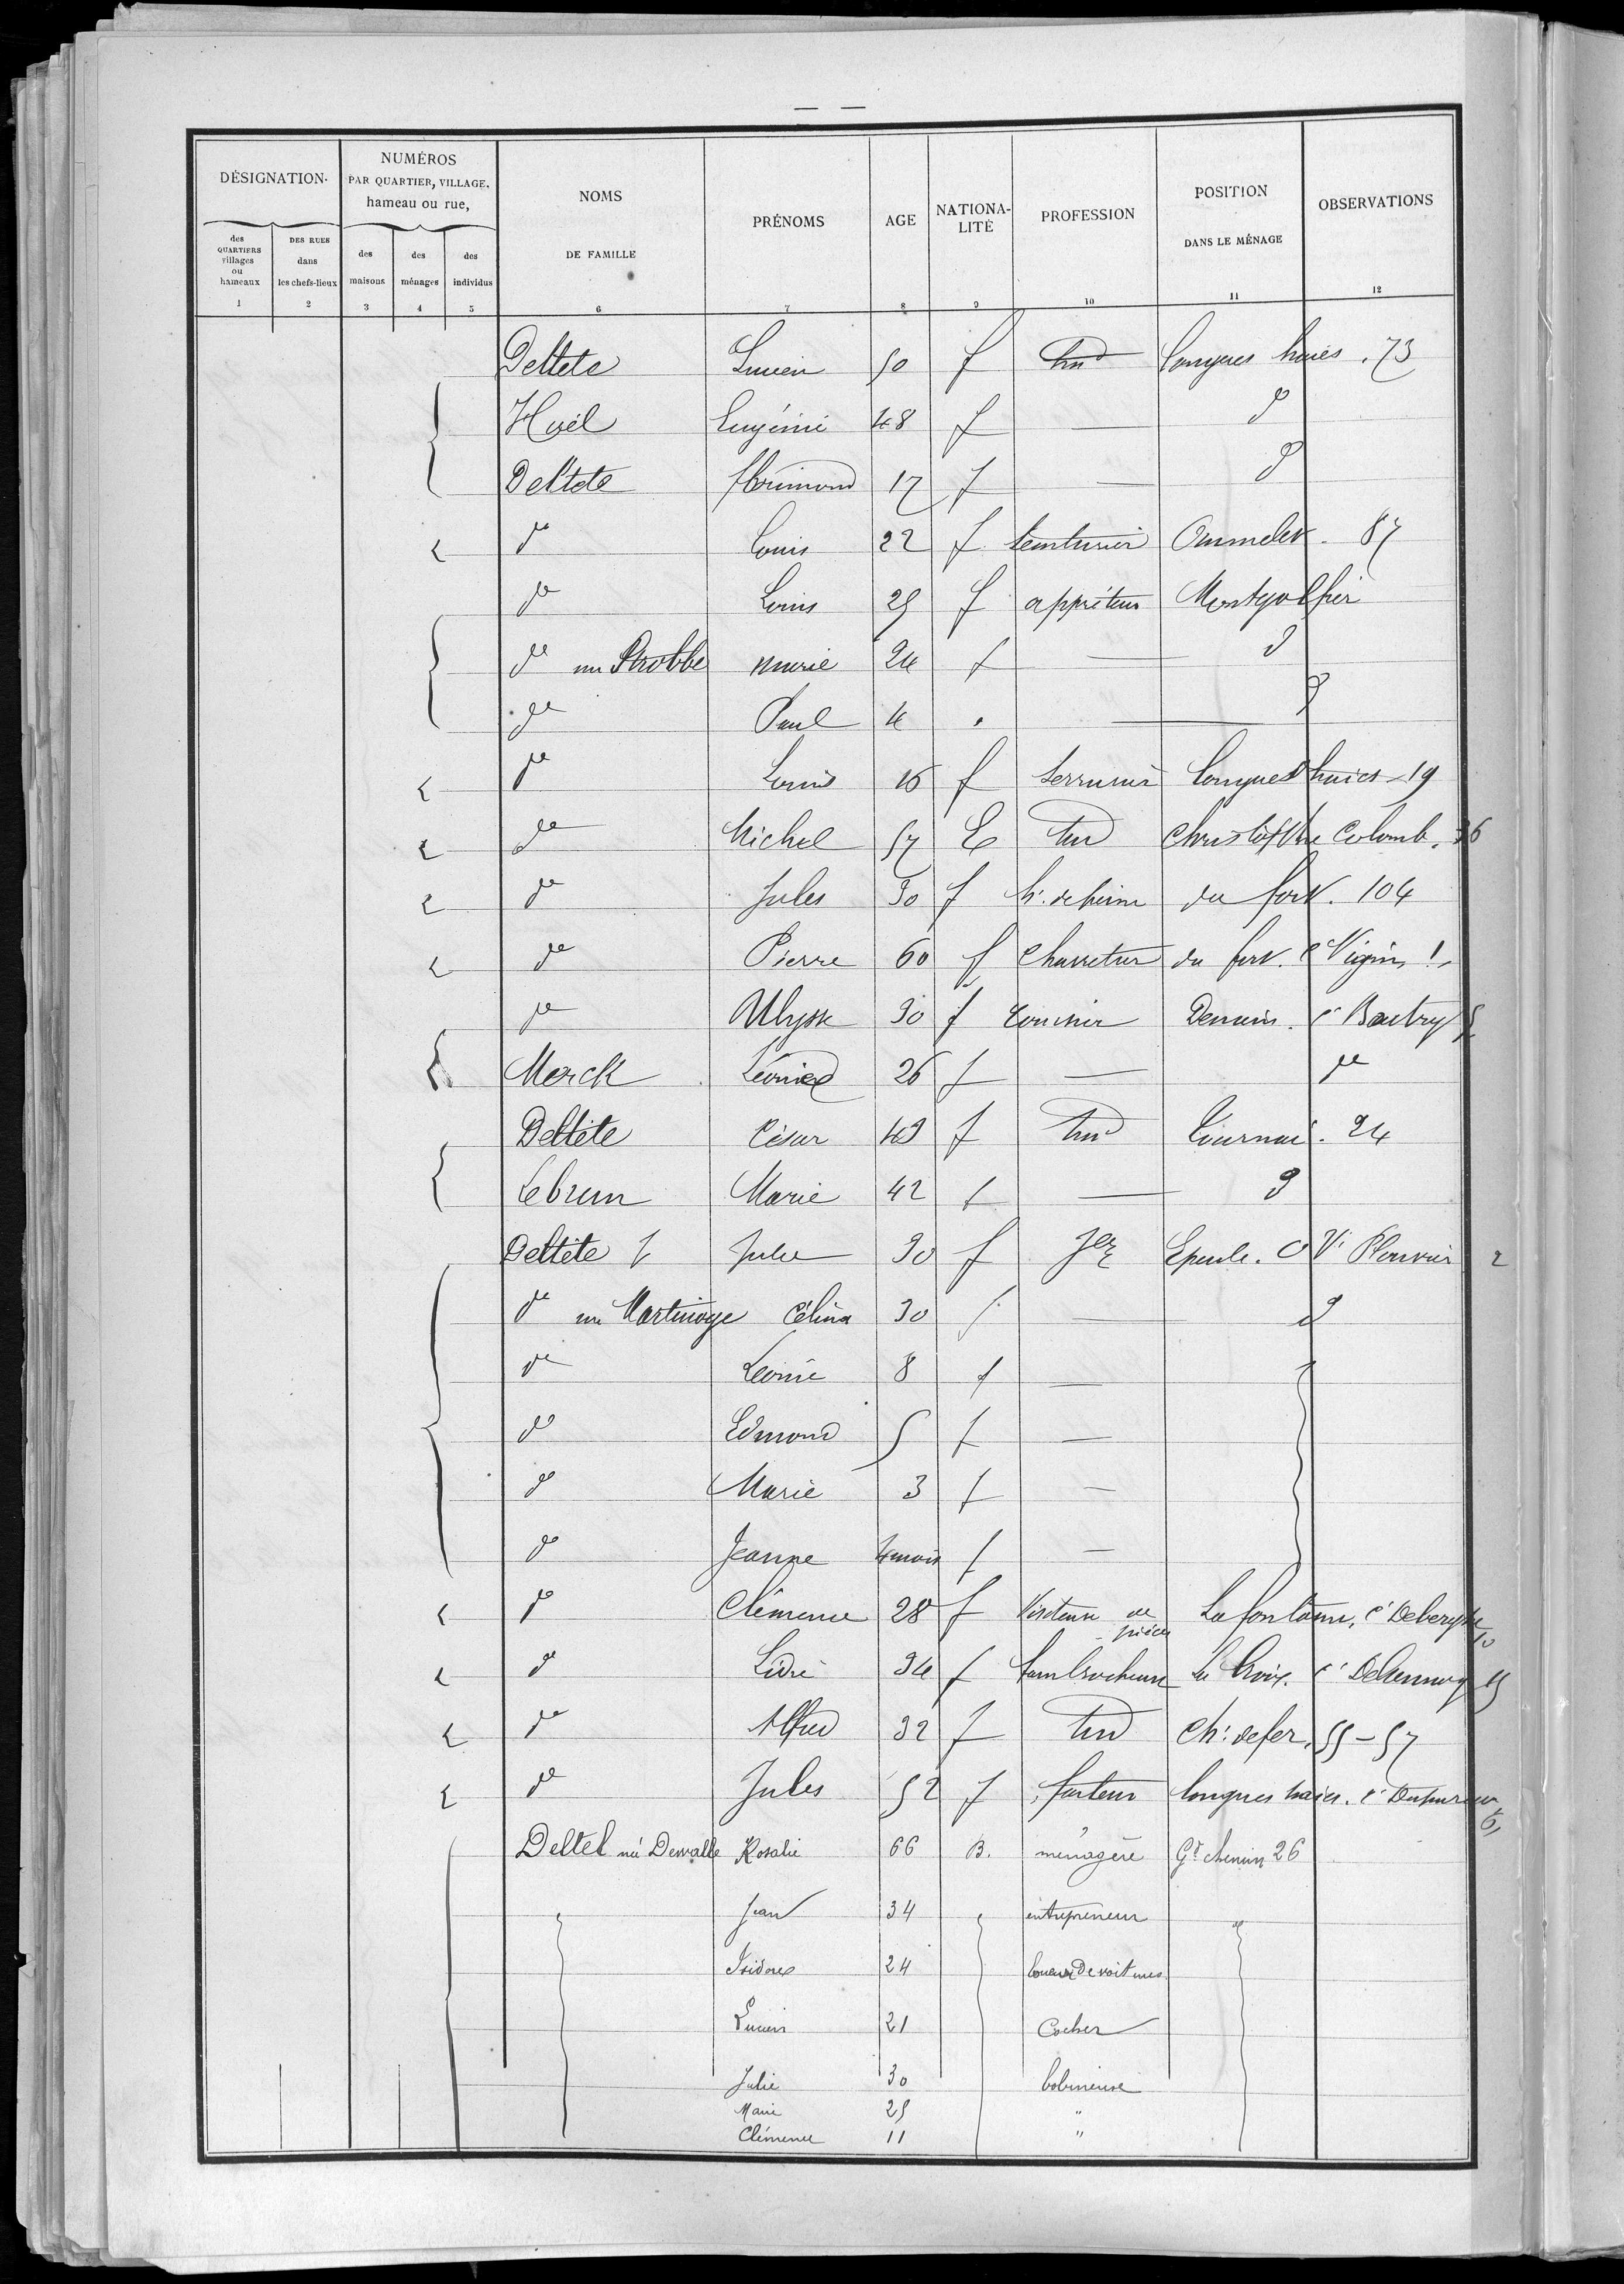 DÉSIGNATION.
NUMÉROS
PAR QUARTIER, VILLAGE,
hameau ou rue,
NOMS
DE FAMILLE
PRÉNOMS
AGE
NATIONA-
LITÉ
PROFESSION
POSITION
DANS LE MÉNAGE
OBSERVATIONS
des QUARTIERS villages ou hameaux
DES RUES dans les chefs-lieux
des maisons
des ménages
des individus
1 2 3 4 5 6 7 8 9 10 11 12
Deltete Lucien 50 f Longues haies . 73
Huél Eugénie 48 f — d°
Deltete florimond 17 f — d°
d° Louis 22 f teinturier 87
d° Louis 25 f appréteur Montgolfier
d° née Strobbe marie 24 f — d°
d° Paul 4 — d°
d° Louis 16 f serrurier Longues haies - 19
d° Michel 57 tnd Christophe Colomb. 36
d° Jules 30 f du fort. 104
d° Pierre 60 f charretier du fort.
d° Ulysse 30 f Denain.
Merck Léonie 26 f — d°
Deltête César 43 f tnd Tournai. 24
Lebrun Marie 42 f — d°
Deltête Jules 30 f Epeule. 2
d° née Martinage Célina 30 f — d°
d° Léonie 8 f —
d° Edmond 5 f —
d° Marie 3 f —
d° Jeanne 4 mois f —
d° Clémence 28 f de pièces Lafontaine, 10
d° 34 f
d° Alfred 32 f tnd Ch: de fer, 55-57
d° Jules 52 f facteur longues haies.
Deltel née Dewalle Rosalie 66 B. ménagère Gd chemin 26
Jean 34 entrepreneur
Isidore 24 loueur de voitures
Lucien 21 Cocher
Julie 30 bobineuse
Marie 25 "
Clémence 11 "